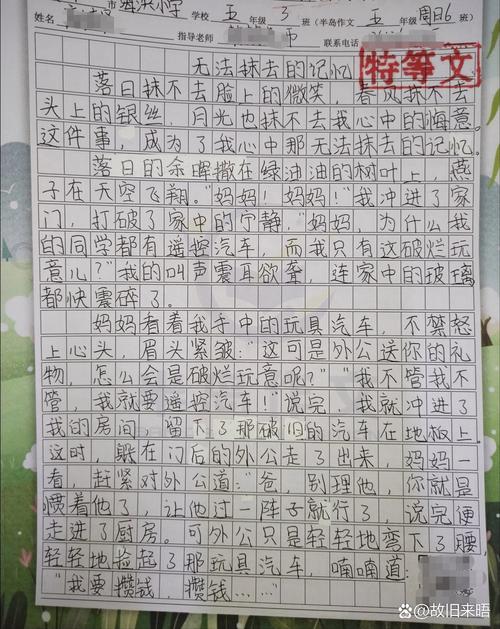 市海洪小学 学校 五 年级 3 班（半岛作文 五 年级 周日6 班）
姓名 指导老师 师 联系电话
无法抹去的记忆
特等文
落日抹不去脸上的微笑，春风抹不去
头上的银丝，月光也抹不去我心中的悔意。
这件事，成为了我心中那无法抹去的记忆。
落日的余晖撒在绿油油的树叶上，燕
子在天空飞翔。“妈妈！妈妈！”我冲进了家
门，打破了家中的宁静。“妈妈，为什么我
的同学都有遥控汽车，而我只有这破烂玩
意儿？”我的叫声震耳欲聋，连家中的玻璃
都快震碎了。
妈妈看着我手中的玩具汽车，不禁怒
上心头，眉头紧皱：“这可是外公送你的礼
物，怎么会是破烂玩意呢？”“我不管我不
管，我就要遥控汽车！”说完，我就冲进了
我的房间，留下了那破旧的汽车在地板上
这时，躲在门后的外公走了出来，妈妈一
看，赶紧对外公道：“爸，别理他，你就是
惯着他了，让他过一阵子就行了，说完便
走进了厨房。可外公只是轻轻地弯下了腰，
轻轻地捡起了那玩具汽车，喃喃道：
“我要攒钱，攒钱……”
@故旧来晤